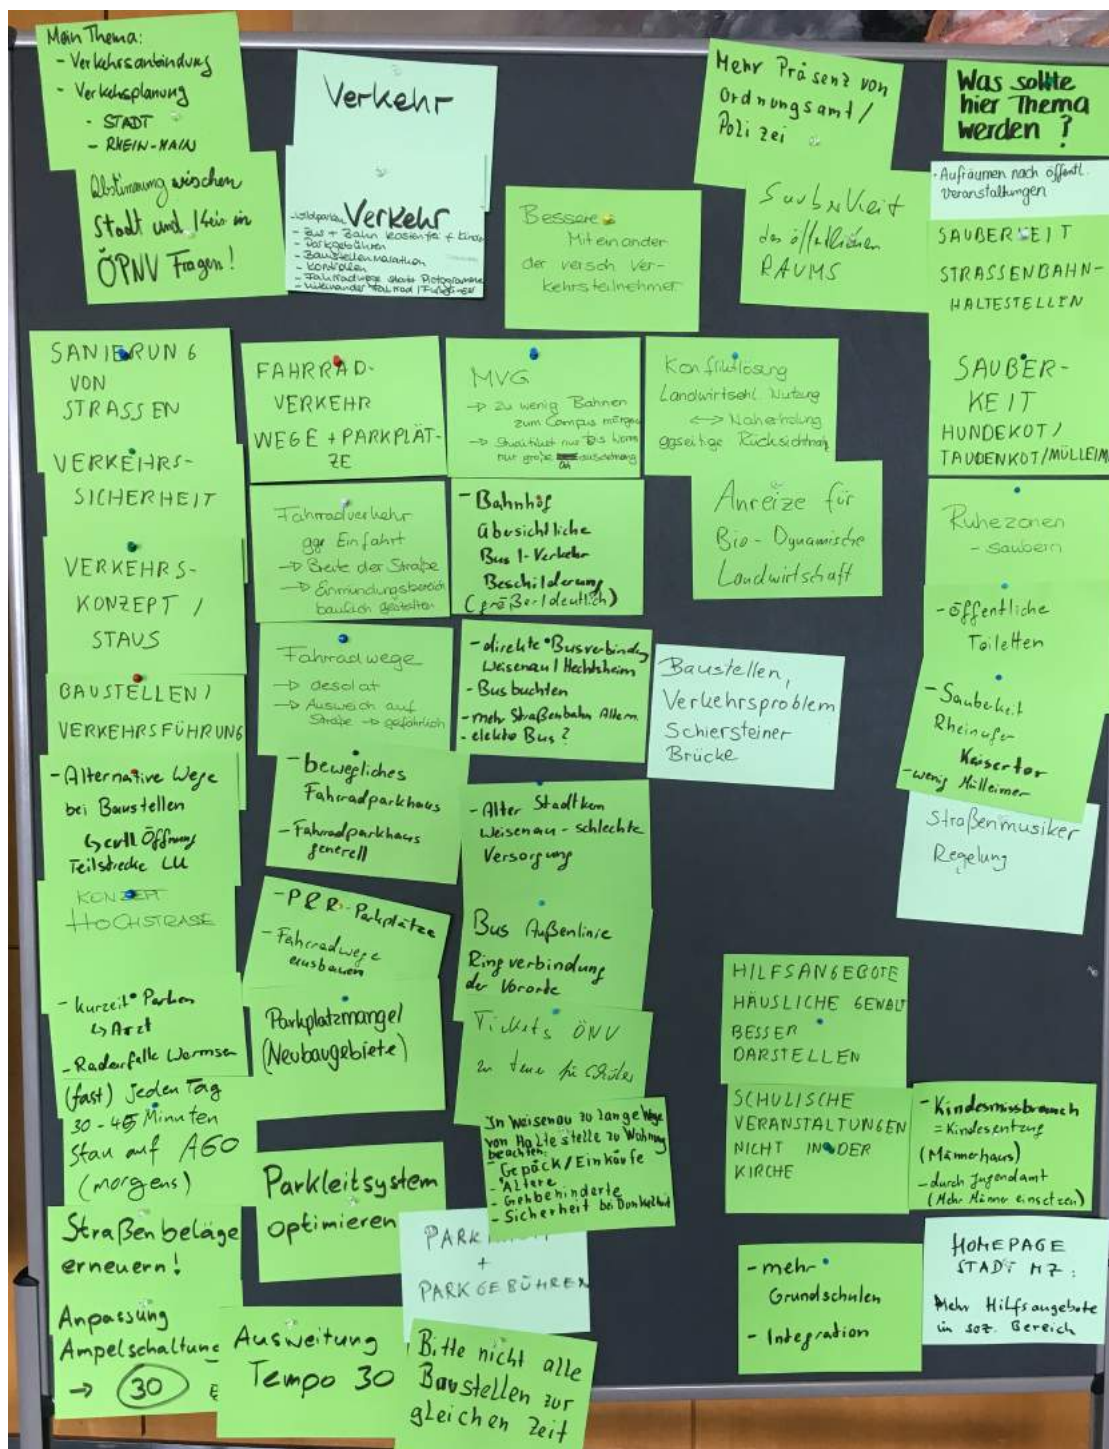 Mein Thema:
- Verkehrsanbindung
- Verkehrsplanung
- STADT
- RHEIN-MAIN
Abstimmung wischen
Stadt und Kreis in
ÖPNV Fragen!
Verkehr
Verkehr
- Bus + Bahn kostenfrei + Kinder
- Parkgebühren
- Baustellenmarathon
- Kontrollen
- Fahrradwege statt Pictogramme
- Miteinander Fahrrad / Fußgänger
Bessere
Miteinander
der versch Ver-
kehrsteilnehmer
Mehr Präsenz von
Ordnungsamt/
Polizei
Sauberkeit
des öffentlichen
RAUMS
Was sollte
hier Thema
werden ?
- Aufräumen nach öffentl.
Veranstaltungen
SAUBERKEIT
STRASSENBAHN-
HALTESTELLEN
SAUBER-
KEIT
HUNDEKOT/
TAUBENKOT/MÜLLEIM
Ruhezonen
- säubern
- öffentliche
Toiletten
- Sauberkeit
Rheinufer
Kaisertor
- wenig Mülleimer
Straßenmusiker
Regelung
SANIERUNG
VON
STRASSEN
VERKEHRS-
SICHERHEIT
VERKEHRS-
KONZEPT /
STAUS
BAUSTELLEN/
VERKEHRSFÜHRUNG
- Alternative Wege
bei Baustellen
↳ evtl Öffnung
Teilstrecke LU
KONZEPT
HOCHSTRASE
- kurzeit Parken
↳ Arzt
- Radarfalle Wormser
(fast) jeden Tag
30 - 45 Minuten
Stau auf A60
(morgens)
Straßenbeläge
erneuern!
Anpassung
Ampelschaltung
→ 30
FAHRRAD-
VERKEHR
WEGE + PARKPLÄT-
ZE
Fahrradverkehr
ggr Einfahrt
→ Breite der Straße
→ Einmündungsbereich
baulich gestalten
Fahrradwege
→ desolat
→ Ausweich auf
Straße → gefährlich
- bewegliches
Fahrradparkhaus
- Fahrradparkhaus
generell
- P&R-Parkplätze
- Fahrradwege
ausbauen
Parkplatzmangel
(Neubaugebiete)
Parkleitsystem
optimieren
Ausweitung
Tempo 30
MVG
→ zu wenig Bahnen
zum Campus morgens
nur große
- Bahnhof
übersichtliche
Bus 1-Verkehr
Beschilderung
(größer/deutlich)
- direkte Busverbindung
Weisenau / Hechtsheim
- Busbuchten
- mehr Straßenbahn Altern.
- elektro Bus?
- Alter Stadtkern
Weisenau - schlechte
Versorgung
Bus Außenlinie
Ringverbindung
der Vororte
Tickets ÖNV
zu teuer für Schüler
In Weisenau zu lange Wege
von Haltestelle zu Wohnung
beachten:
- Gepäck/Einkäufe
- Ältere
- Gehbehinderte
- Sicherheit bei Dunkelheit
PARK
+
PARKGEBÜHREN
Bitte nicht alle
Baustellen zur
gleichen Zeit
Konfliktlösung
Landwirtschl Nutzung
↔ Naherholung
ggseitige Rücksichtnah
Anreize für
Bio-Dynamische
Landwirtschaft
Baustellen,
Verkehrsproblem
Schiersteiner
Brücke
HILFSANGEBOTE
HÄUSLICHE GEWALT
BESSER
DARSTELLEN
SCHULISCHE
VERANSTALTUNGEN
NICHT IN DER
KIRCHE
- mehr
Grundschulen
- Integration
- Kindesmissbrauch
= Kindesentzug
(Männerhaus)
- durch Jugendamt
(Mehr Männer einsetzen)
HOMEPAGE
STADT MZ:
Mehr Hilfsangebote
in soz. Bereich